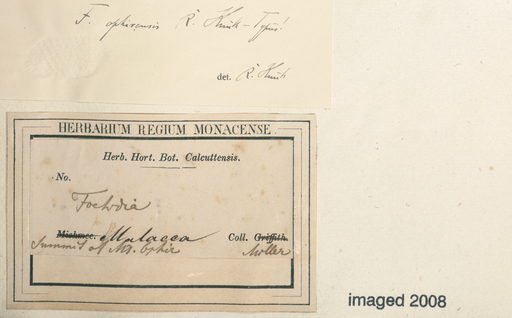 F. ophirensis R. Knuth – Typus!
det. R. Knuth
HERBARIUM REGIUM MONACENSE.
Herb. Hort. Bot. Calcuttensis.
No.
Foetidia
Mishmee. Malacca Coll. Griffith.
Summit of Mt. Ophir Möller
imaged 2008